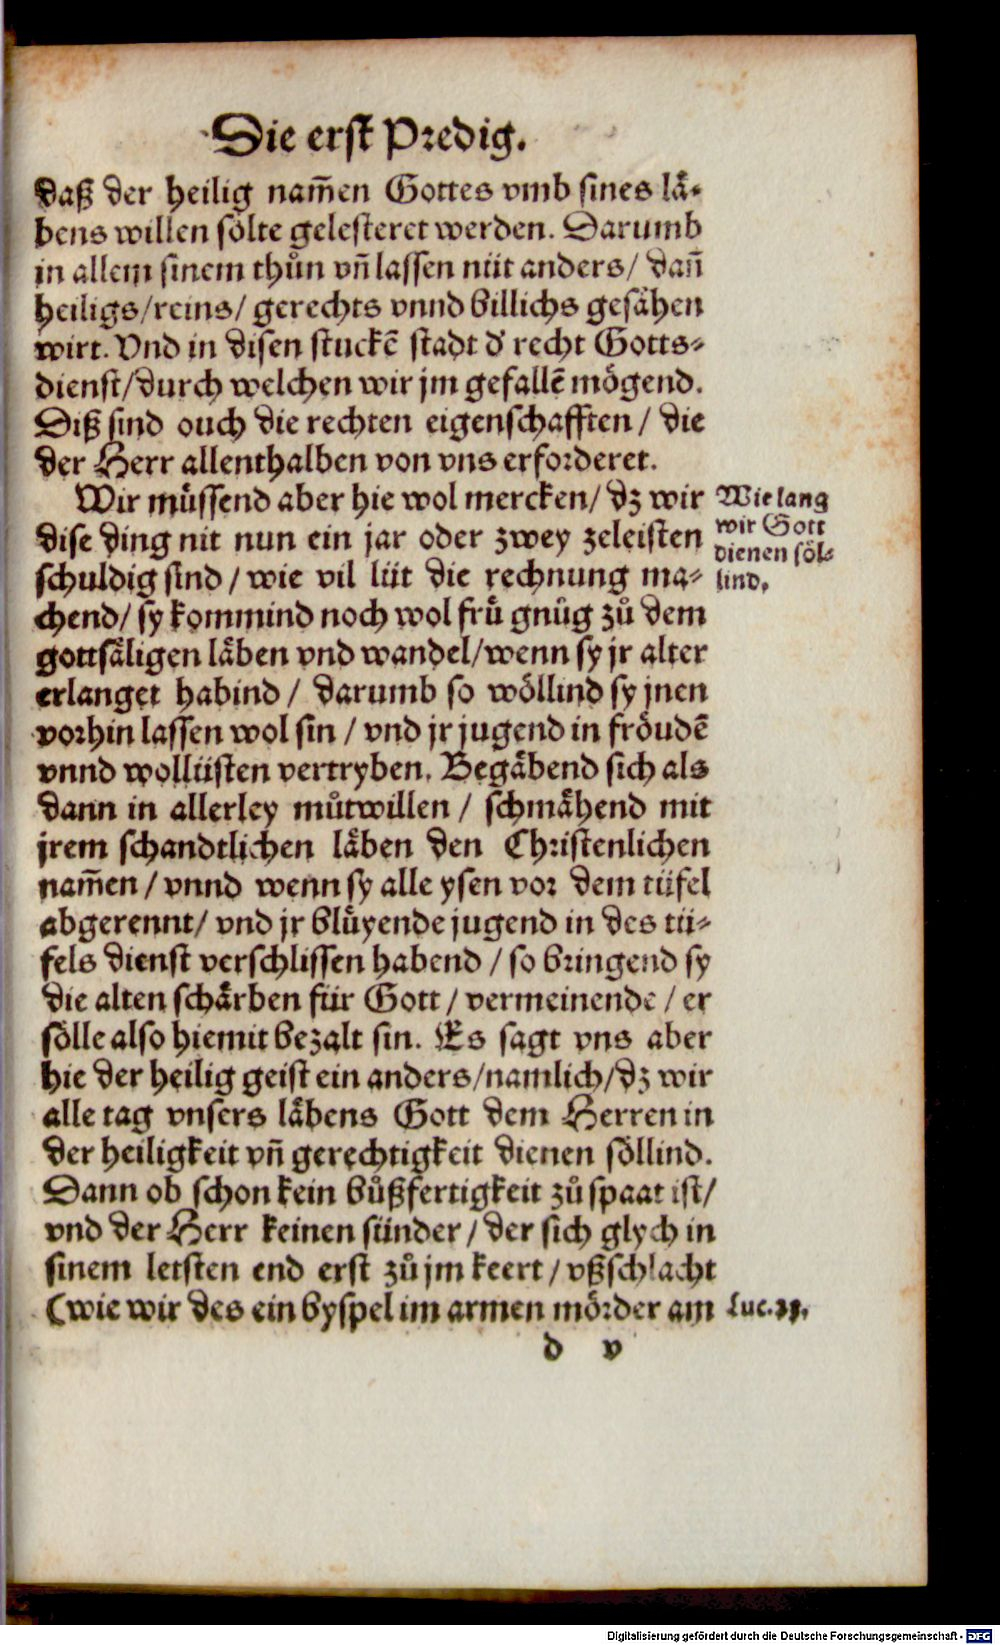 Die erst Predig.
daß der heilig nam̃en Gottes vmb sines lä-
bens willen sölte gelesteret werden. Darumb
in allem sinem thůn vñ lassen nüt anders/ dañ
heiligs/reins/ gerechts vnnd billichs gesähen
wirt. Vnd in disen stuckẽ stadt d' recht Gotts-
dienst/durch welchen wir jm gefallẽ mögend.
Diß sind ouch die rechten eigenschafften/ die
der Herr allenthalben von vns erforderet.
Wir müssend aber hie wol mercken/ dz wir
dise ding nit nun ein jar oder zwey zeleisten
schuldig sind/ wie vil lüt die rechnung ma-
chend/ sy kommind noch wol frü gnůg zů dem
gottsäligen läben vnd wandel/wenn sy jr alter
erlanget habind/ darumb so wöllind sy jnen
vorhin lassen wol sin/ vnd jr jugend in fröudẽ
vnnd wollüsten vertryben. Begäbend sich als
dann in allerley můtwillen/ schmähend mit
jrem schandtlichen läben den Christenlichen
nam̃en/ vnnd wenn sy alle ysen vor dem tüfel
abgerennt/ vnd jr blüyende jugend in des tü-
fels dienst verschlissen habend/ so bringend sy
die alten schärben für Gott/ vermeinende/ er
sölle also hiemit bezalt sin. Es sagt vns aber
hie der heilig geist ein anders/namlich/dz wir
alle tag vnsers läbens Gott dem Herren in
der heiligkeit vñ gerechtigkeit dienen söllind.
Dann ob schon kein bůßfertigkeit zů spaat ist/
vnd der Herr keinen sünder/ der sich glych in
sinem letsten end erst zů jm keert/ vßschlacht
(wie wir des ein byspel im armen mörder am
d v
Wie lang
wir Gott
dienen söl-
lind.
Luc. 23.
Digitalisierung gefördert durch die Deutsche Forschungsgemeinschaft - DFG